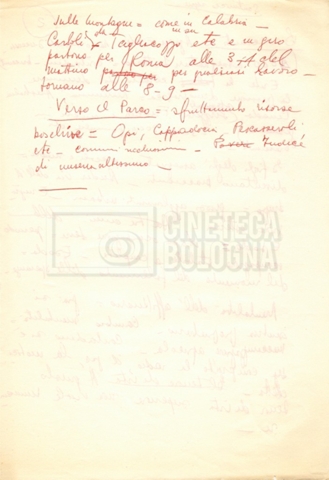 sulle montagne = come in Calabria -
Carsoli Tagliacozzo etc e in giro
partono per Roma alle 3-4 del
mattino per qualsiasi lavoro -
tornano alle 8-9 -
Verso il Parco = sfruttamento risorse
boschive = Opi, Cappadocia, Pescasseroli
etc - comuni - indice
di miseria altissimo -
CINETECA
BOLOGNA